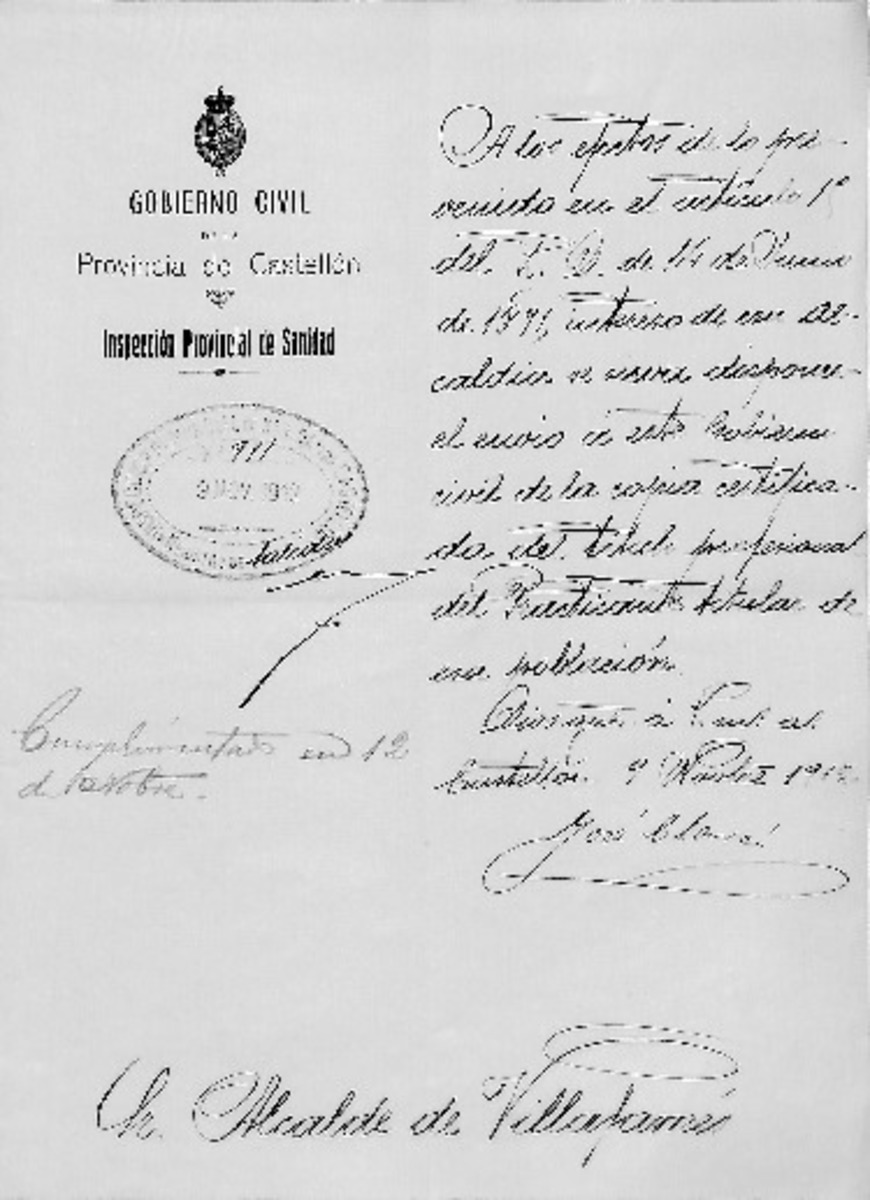 GOBIERNO CIVIL
DE LA
Provincia de Castellón
Inspección Provincial de Sanidad
911
9 NOV. 1912
Salida
A los efectos de lo pre-
venido en el artículo 1º
del R. D. de 14 de Junio
de 1891, intereso de esa Al-
caldia se sirva disponer
el envio á este Gobierno
civil de la copia certifica-
da del titulo profesional
del Practicante titular de
esa población.
Dios gue á Vd.
Castellón 9 Novbre 1912
José Clará
Cumplimentado en 12
d Novbre.
Sr. Alcalde de Villafamés